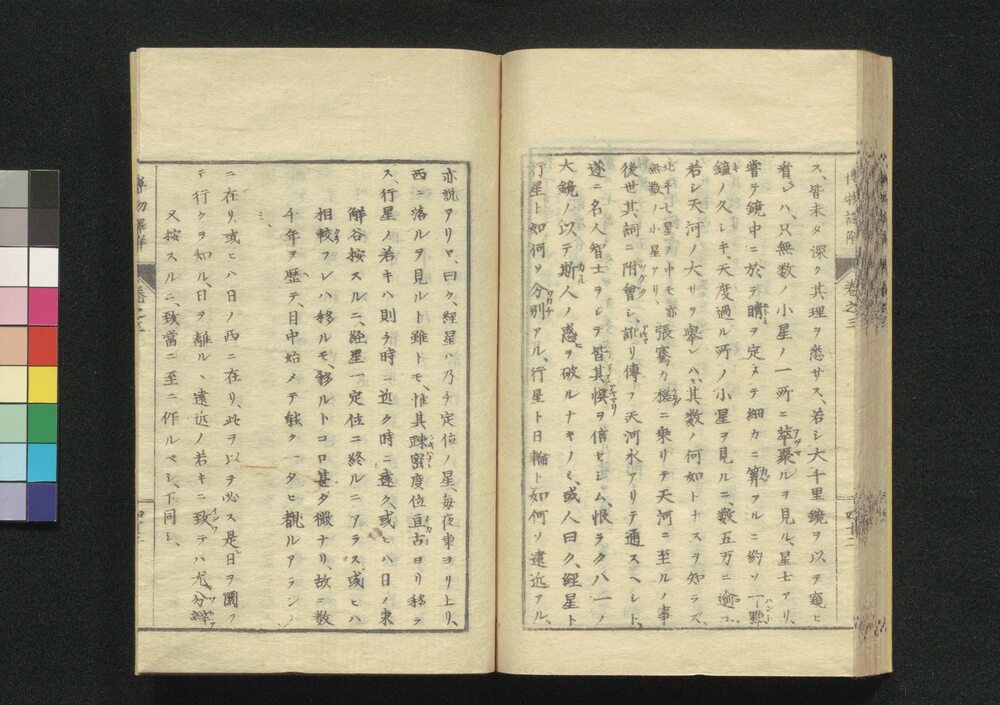 ス、皆未タ深ク其理ヲ悉サス、若シ大千里鏡ヲ以テ窺ヒ
看レハ、只無数ノ小星ノ一所ニ萃聚ルヲ見ル、星士アリ、
嘗テ鏡中ニ於テ睛ヲ定メテ細カニ算フルニ約ソ一點
鐘ノ久シキ、天度過ル所ノ小星ヲ見ルニ、数五万ニ逾ユ、
若シ天河ノ大サヲ舉レハ、其数ノ何如トナスヲ知ラズ、
北斗七星ノ中モ亦
無数ノ小星アリ、
張騫カ槎ニ乗リテ天河ニ至ルノ事
後世其詞ニ附會シ、訛リ傳フ天河水アリテ通スヘシト、
遂ニ名人智士ヲシテ皆其悞ヲ信セシム、恨ラクハ一ノ
大鏡ノ以テ斯人ノ惑ヲ破ルナキノミ、或人曰ク、經星ト
行星ト如何ソ分別アル、行星ト日輪ト如何ソ遠近アル、
博物
巻之三
亦説アリロ、曰ク、經星ハ乃チ定位ノ星、毎夜東ヨリ上リ、
西ニ落ルヲ見ルト雖トモ、惟其疎密度位亘古ヨリ移ラ
ス、行星ノ若キハ則チ時ニ近ク時ニ遠ク、或ヒハ日ノ東
解谷按スルニ、經星一定位ニ終ルニアラス、或ヒハ
相較フレハ移ルモ、移ルトコロ甚タ微ナリ、故ニ数
千年ヲ歴テ、日中始メテ能ク一タヒ覩ルアラン
ミ、
ニ在リ或ヒハ日ノ西ニ在リ、此ヲ以テ必ス是日ヲ圜ヲ
テ行クヲ知ル、日ヲ離ル、遠近ノ若キニ致テハ尤分辯
又按スルニ、致當ニ至ニ作ルベシ、下同シ、